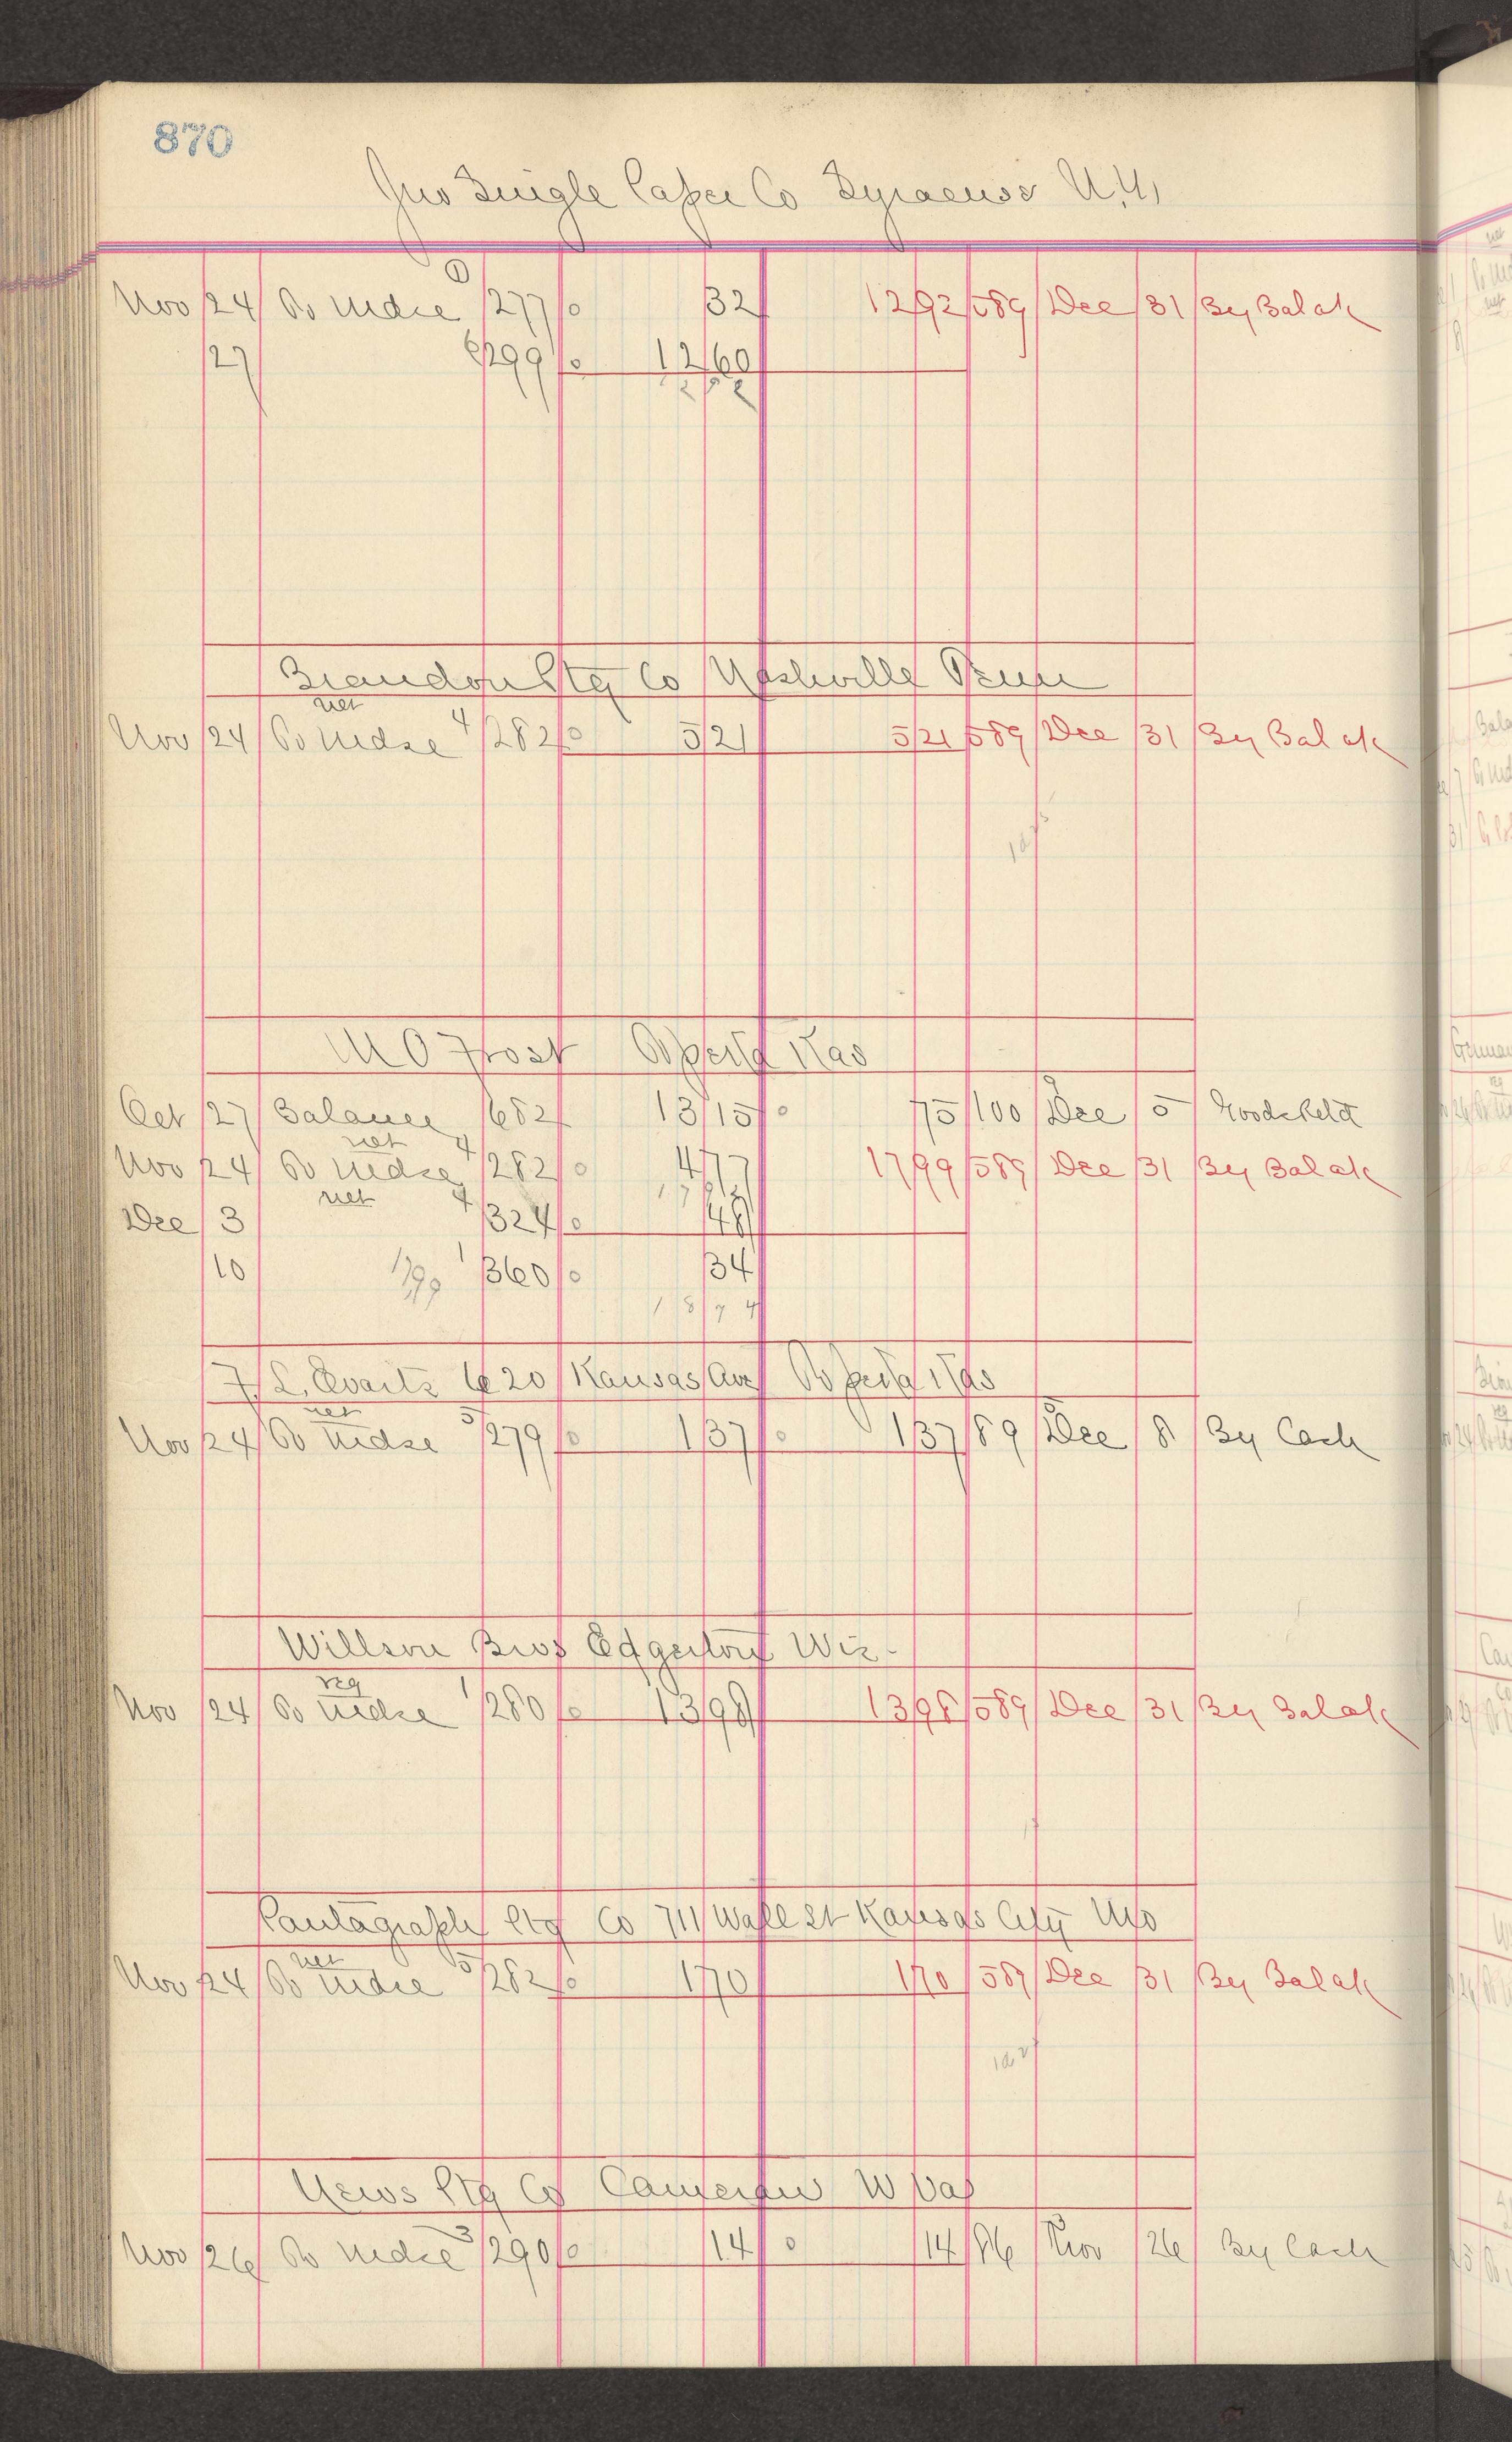 870
Jno Single Paper Co Syracuse N.Y,
Nov 24 To Mdse 1 277 0 32 1292 589 Dec 31 By Bal ak
27 6 299 0 1260
1292
Brandon Ptg Co Nashville Tenn
net
Nov 24 To Mdse 4 282 0 521 521 589 Dec 31 By Bal ak
M O Frost Topeka Kas
Oct 27 Balance 682 1315 0 75 100 Dec 5 Goods Retd
net
Nov 24 To Mdse 4 282 0 477 1799 589 Dec 31 By Bal ak
net
Dec 3 4 324 0 48
10 1799 1 360 0 34
1874
F. L. Evarts 620 Kansas Ave Topeka Kas
net
Nov 24 To Mdse 5 279 0 137 0 137 89 Dec 8 By Cash
Willson Bros Edgerton Wis-
reg
Nov 24 To Mdse 1 280 0 1398 1398 589 Dec 31 By Bal ak
Pantagraph Ptg Co 711 Wall St Kansas City Mo
net
Nov 24 To Mdse 5 282 0 170 170 589 Dec 31 By Bal ak
News Ptg Co Cameron W Va
Nov 26 To Mdse 3 290 0 14 0 14 86 Nov 26 By Cash